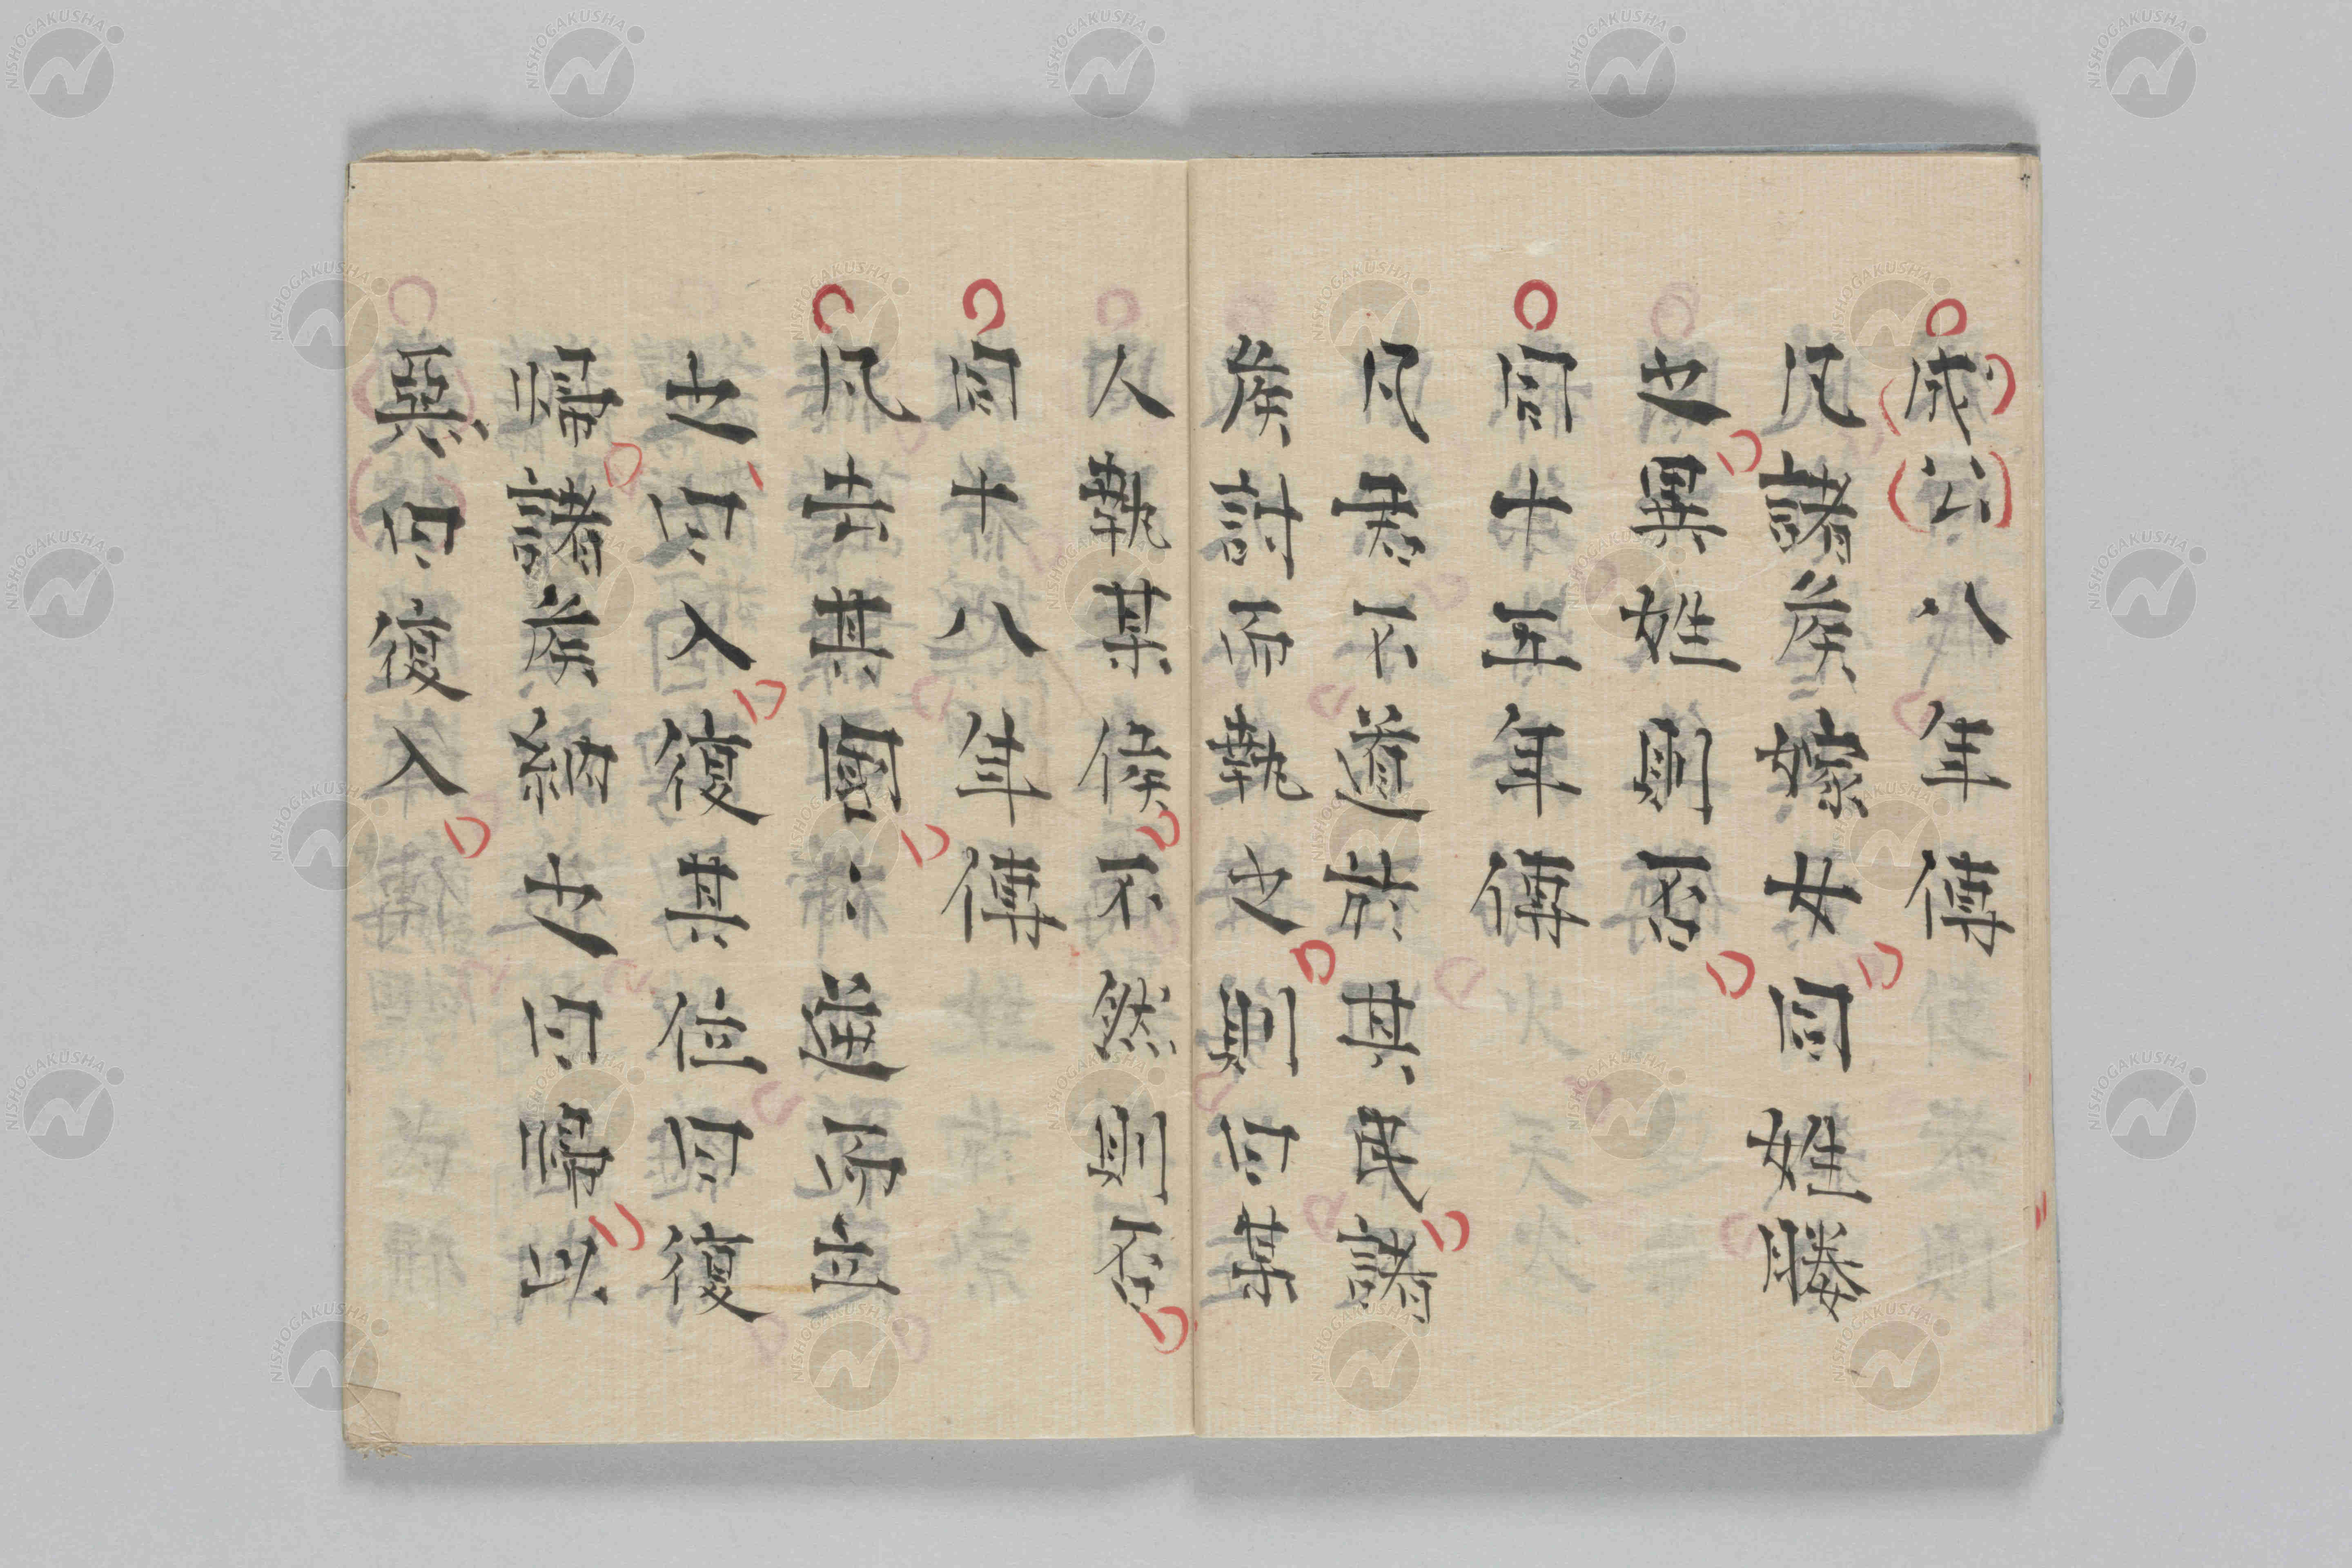 成公八年傳
凡諸侯嫁女同姓媵
之異姓則否
同十五年傳
凡君不道於其民諸
侯討而執之則曰某
人執某侯不然則否
同十八年傳
凡去其國〻逆而立
之曰入復其位曰復
歸諸侯納之曰歸以
惡曰復入
NISHOGAKUSHA